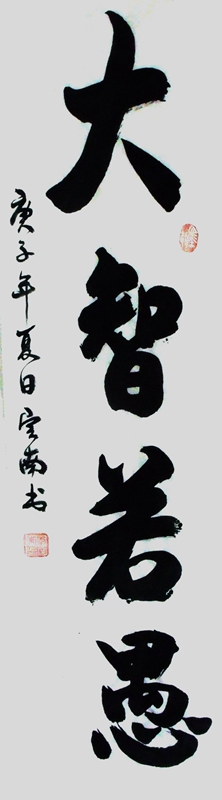 大智若愚
庚子年夏日定南书